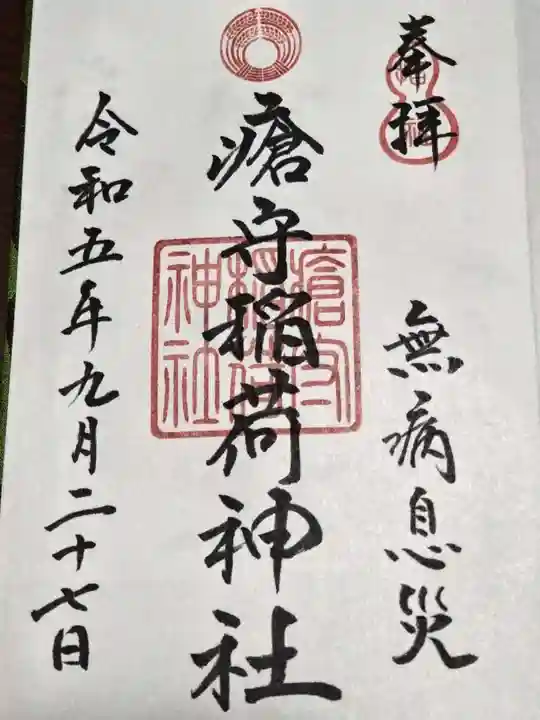 奉拝
無病息災
瘡守稲荷神社
瘡守稲荷神社
令和五年九月二十七日